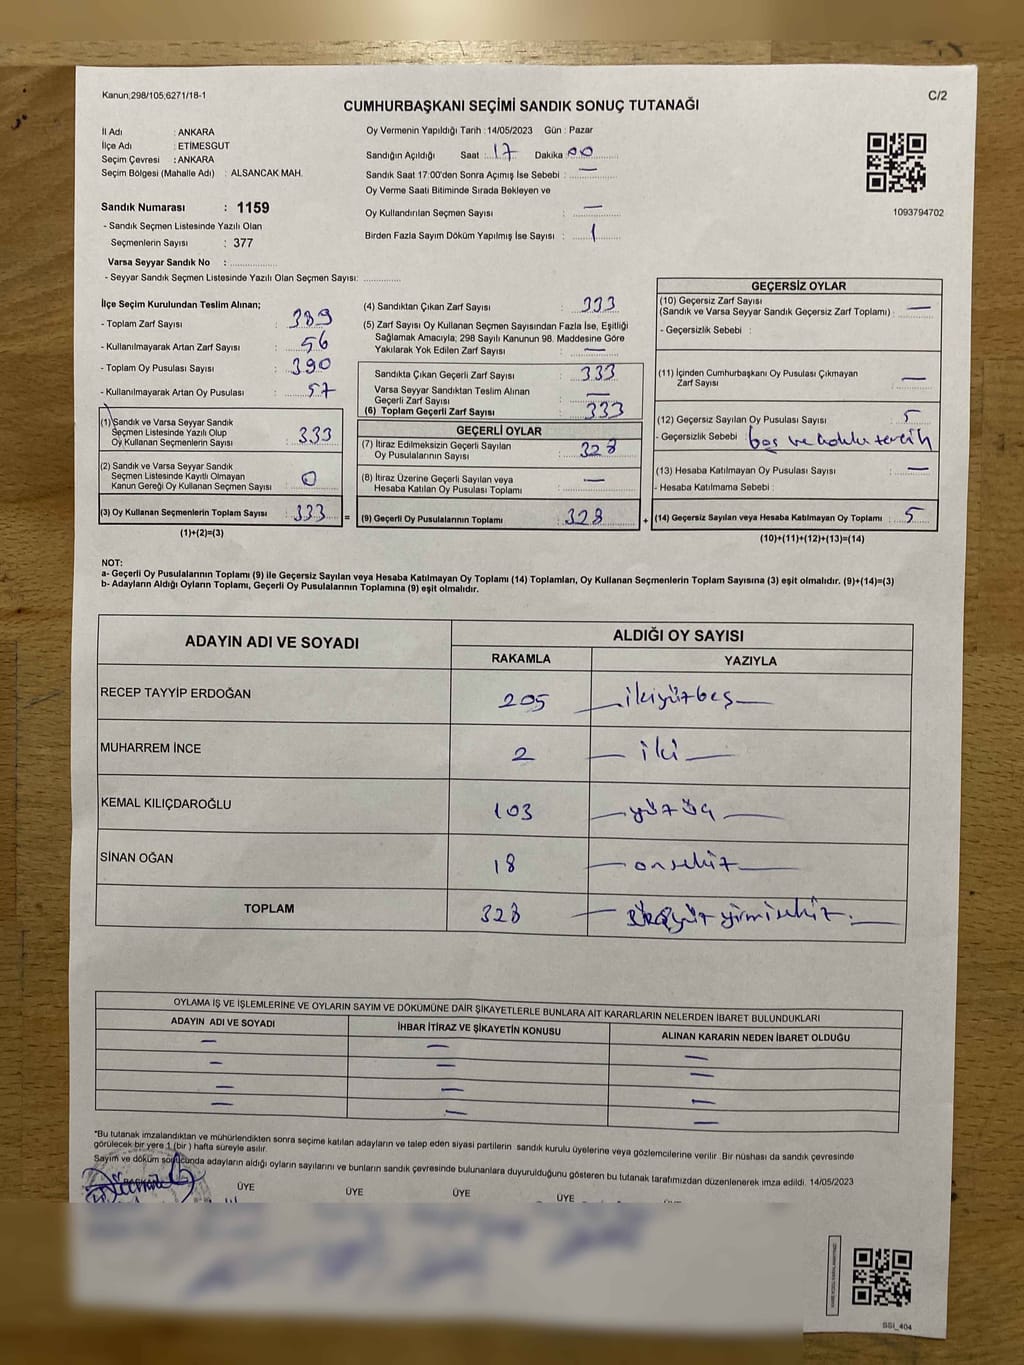 Kanun;298/105;6271/18-1
C/2
CUMHURBAŞKANI SEÇİMİ SANDIK SONUÇ TUTANAĞI
İl Adı : ANKARA
İlçe Adı : ETİMESGUT
Seçim Çevresi : ANKARA
Seçim Bölgesi (Mahalle Adı) : ALSANCAK MAH.
Sandık Numarası : 1159
- Sandık Seçmen Listesinde Yazılı Olan
Seçmenlerin Sayısı : 377
Varsa Seyyar Sandık No :
- Seyyar Sandık Seçmen Listesinde Yazılı Olan Seçmen Sayısı:
Oy Vermenin Yapıldığı Tarih : 14/05/2023 Gün : Pazar
Sandığın Açıldığı Saat : 17 Dakika 00
Sandık Saat 17:00'den Sonra Açımış İse Sebebi : —
Oy Verme Saati Bitiminde Sırada Bekleyen ve
Oy Kullandırılan Seçmen Sayısı : —
Birden Fazla Sayım Döküm Yapılmış İse Sayısı : 1
1093794702
İlçe Seçim Kurulundan Teslim Alınan;
- Toplam Zarf Sayısı : 389
- Kullanılmayarak Artan Zarf Sayısı : 56
- Toplam Oy Pusulası Sayısı : 390
- Kullanılmayarak Artan Oy Pusulası : 57
(1) Sandık ve Varsa Seyyar Sandık
Seçmen Listesinde Yazılı Olup
Oy Kullanan Seçmenlerin Sayısı : 333
(2) Sandık ve Varsa Seyyar Sandık
Seçmen Listesinde Kayıtlı Olmayan
Kanun Gereği Oy Kullanan Seçmen Sayısı : 0
(3) Oy Kullanan Seçmenlerin Toplam Sayısı : 333 =
(1)+(2)=(3)
(4) Sandıktan Çıkan Zarf Sayısı : 333
(5) Zarf Sayısı Oy Kullanan Seçmen Sayısından Fazla İse, Eşitliği
Sağlamak Amacıyla; 298 Sayılı Kanunun 98. Maddesine Göre
Yakılarak Yok Edilen Zarf Sayısı : —
Sandıkta Çıkan Geçerli Zarf Sayısı : 333
Varsa Seyyar Sandıktan Teslim Alınan
Geçerli Zarf Sayısı : —
(6) Toplam Geçerli Zarf Sayısı : 333
GEÇERLİ OYLAR
(7) İtiraz Edilmeksizin Geçerli Sayılan
Oy Pusulalarının Sayısı : 328
(8) İtiraz Üzerine Geçerli Sayılan veya
Hesaba Katılan Oy Pusulası Toplamı : —
(9) Geçerli Oy Pusulalarının Toplamı : 328 +
GEÇERSİZ OYLAR
(10) Geçersiz Zarf Sayısı
(Sandık ve Varsa Seyyar Sandık Geçersiz Zarf Toplamı) : —
- Geçersizlik Sebebi :
(11) İçinden Cumhurbaşkanı Oy Pusulası Çıkmayan
Zarf Sayısı : —
(12) Geçersiz Sayılan Oy Pusulası Sayısı : 5
- Geçersizlik Sebebi boş ve tercih
(13) Hesaba Katılmayan Oy Pusulası Sayısı : —
- Hesaba Katılmama Sebebi :
(14) Geçersiz Sayılan veya Hesaba Katılmayan Oy Toplamı : 5
(10)+(11)+(12)+(13)=(14)
NOT:
a- Geçerli Oy Pusulalarının Toplamı (9) ile Geçersiz Sayılan veya Hesaba Katılmayan Oy Toplamı (14) Toplamları, Oy Kullanan Seçmenlerin Toplam Sayısına (3) eşit olmalıdır. (9)+(14)=(3)
b- Adayların Aldığı Oyların Toplamı, Geçerli Oy Pusulalarının Toplamına (9) eşit olmalıdır.
ADAYIN ADI VE SOYADI
ALDIĞI OY SAYISI
RAKAMLA YAZIYLA
RECEP TAYYİP ERDOĞAN 205 — ikiyüzbeş —
MUHARREM İNCE 2 — iki —
KEMAL KILIÇDAROĞLU 103 — yüzüç —
SİNAN OĞAN 18 — onsekiz —
TOPLAM 328 — üçyüz yirmisekiz. —
OYLAMA İŞ VE İŞLEMLERİNE VE OYLARIN SAYIM VE DÖKÜMÜNE DAİR ŞİKAYETLERLE BUNLARA AİT KARARLARIN NELERDEN İBARET BULUNDUKLARI
ADAYIN ADI VE SOYADI İHBAR İTİRAZ VE ŞİKAYETİN KONUSU ALINAN KARARIN NEDEN İBARET OLDUĞU
— — —
— — —
— — —
— — —
*Bu tutanak imzalandıktan ve mühürlendikten sonra seçime katılan adayların ve talep eden siyasi partilerin sandık kurulu üyelerine veya gözlemcilerine verilir. Bir nüshası da sandık çevresinde
görülecek bir yere 1 (bir) hafta süreyle asılır.
Sayım ve döküm sonucunda adayların aldığı oyların sayılarını ve bunların sandık çevresinde bulunanlara duyurulduğunu gösteren bu tutanak tarafımızdan düzenlenerek imza edildi. 14/05/2023
ÜYE ÜYE ÜYE ÜYE
SSI_404